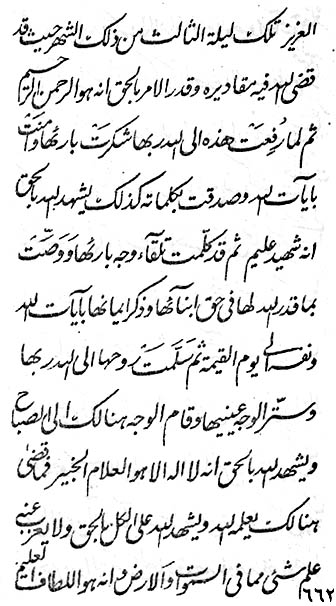 العزيز تلك ليلة الثالث من ذلك الشهر حيث قد
قضى الله فيه مقاديره وقدر الامر بالحق انه هو الرحمن الراحم
ثم لما رفعت هذه الى الله ربها شكرت بارئها وامنت
بايآت الله وصدقت بكلماته كذلك يشهد الله بالحق
انه شهيد عليم ثم قد كلمت تلقآء وجه بارئها ووصّت
بما قدر الله لها في حق ابنآئها وذكر ايمانها بايآت الله
ونفسه الى يوم القيمة ثم سلّمت روحها الى الله ربها
وستر الوجه عينيها وقام الوجه هنالك الى الصباح
ويشهد الله بالحق انه لا اله الا هو العلام الخبير فما قضى
هنالك يعلمه الله ويشهد الله على الكل بالحق ولا يعزب عنه
علم شئ مما في السموات والارض وانه هو اللطاف العليم